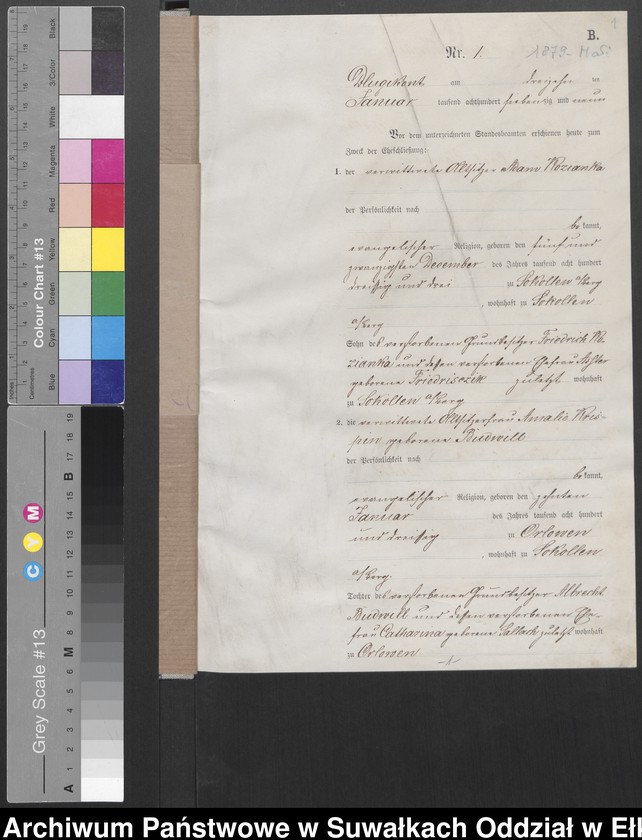 B.
Nr. 1.
1879
Dlugikont am dreizehn ten
Januar tausend achthundert siebenzig und neun
Vor dem unterzeichneten Standesbeamten erschienen heute zum
Zweck der Eheschließung:
1. der verwittwete Altsitzer Adam Kozianka
der Persönlichkeit nach
be kannt,
evangelischer Religion, geboren den fünf und
zwanzigsten December des Jahres tausend acht hundert
dreißig und drei zu Sokollen a/berg
, wohnhaft zu Sokollen
a/berg
Sohn des verstorbenen Grundbesitzer Friedrich Ko-
zianka und dessen verstorbenen Ehefrau
geborene zuletzt wohnhaft
zu Sokollen a/berg
2. die verwittwete Altsitzerfrau Amalie
geborene Budwill
der Persönlichkeit nach
be kannt,
evangelischer Religion, geboren den zehnten
Januar des Jahres tausend acht hundert
und dreißig zu Orlowen
, wohnhaft zu Sokollen
a/berg.
Tochter des verstorbenen Grundbesitzer Albrecht
Budwill und dessen verstorbenen Ehe-
frau Catharina geborene zuletzt wohnhaft
zu Orlowen
Colour Chart #13
Black
3/Color
White
Magenta
Red
Yellow
Green
Cyan
Blue
Centimetres
Inches
Grey Scale #13
C Y M
A 1 2 3 4 5 6 M 8 9 10 11 12 13 14 15 B 17 18 19
Archiwum Państwowe w Suwałkach Oddział w Eł